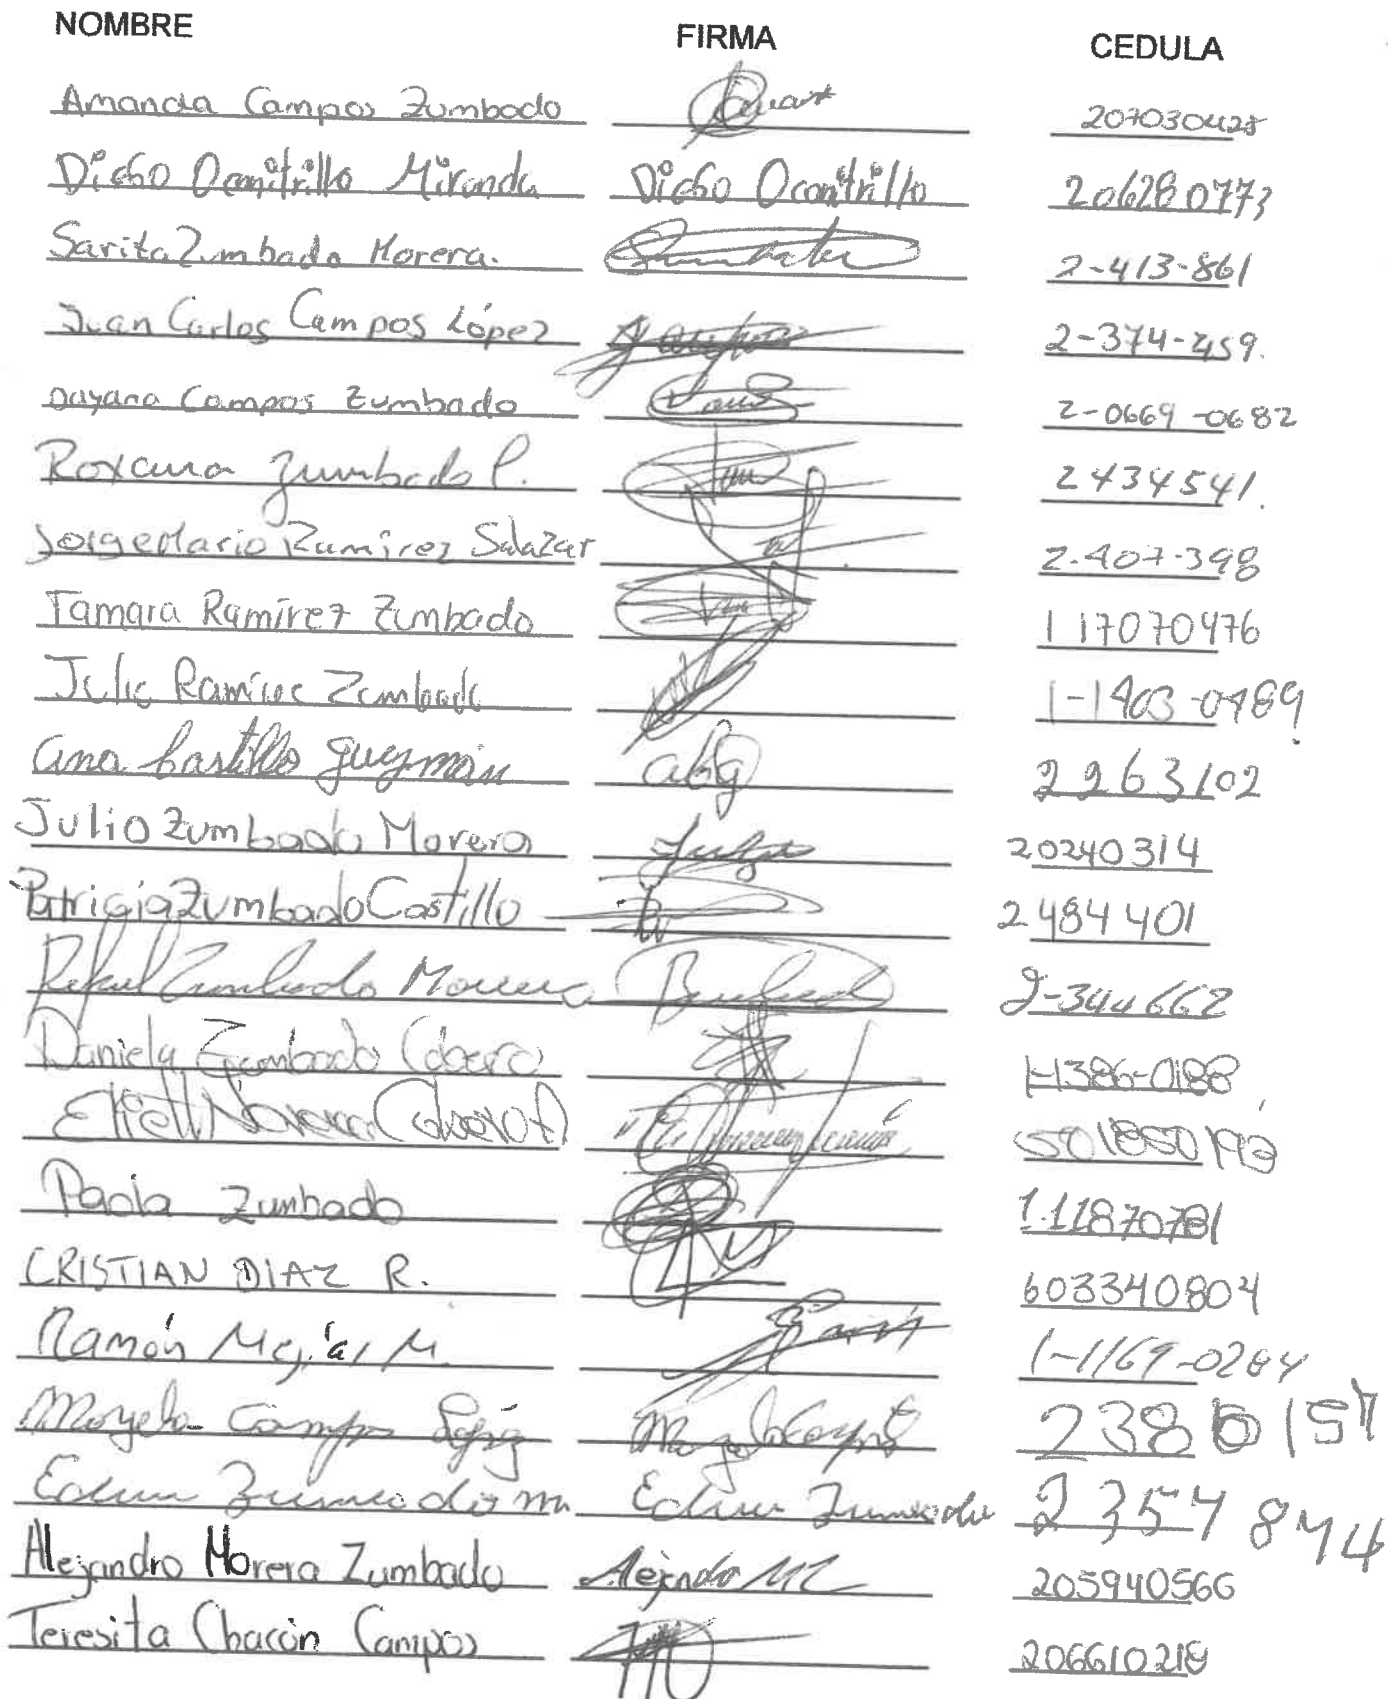 NOMBRE FIRMA CEDULA
Amanda Campos Zumbado 207030425
Diego Ocanitrillo Miranda Diego Ocontrillo 206280773
Sarita Zumbado Morera. 2-413-861
Juan Carlos Campos López 2-374-459.
Dayana Campos Zumbado 2-0669-0682
Roxana Zumbado P. 2434541.
Jorge Mario Ramírez Salazar 2-407-398
Tamara Ramírez Zumbado 1 17070476
Julio Ramírez Zumbado 1-1403-0489
Ana Castillo Guzmán acg 2263102
Julio Zumbado Morera 20240314
Patricia Zumbado Castillo 2484401
Rafael Zumbado Morera 2-344662
Daniela Zumbado Cabero 1-1386-0188
Cabero 501850193
Paola Zumbado 1.11870781
CRISTIAN DIAZ R. 603340804
Ramón Mejías M. 1-1169-0284
Mayela Campos López Mayela Campos 2386157
Edwin Zumbado M. Edwin Zumbado 2354874
Alejandro Morera Zumbado Alejandro MZ 205940566
Teresita Chacón Campos 206610218